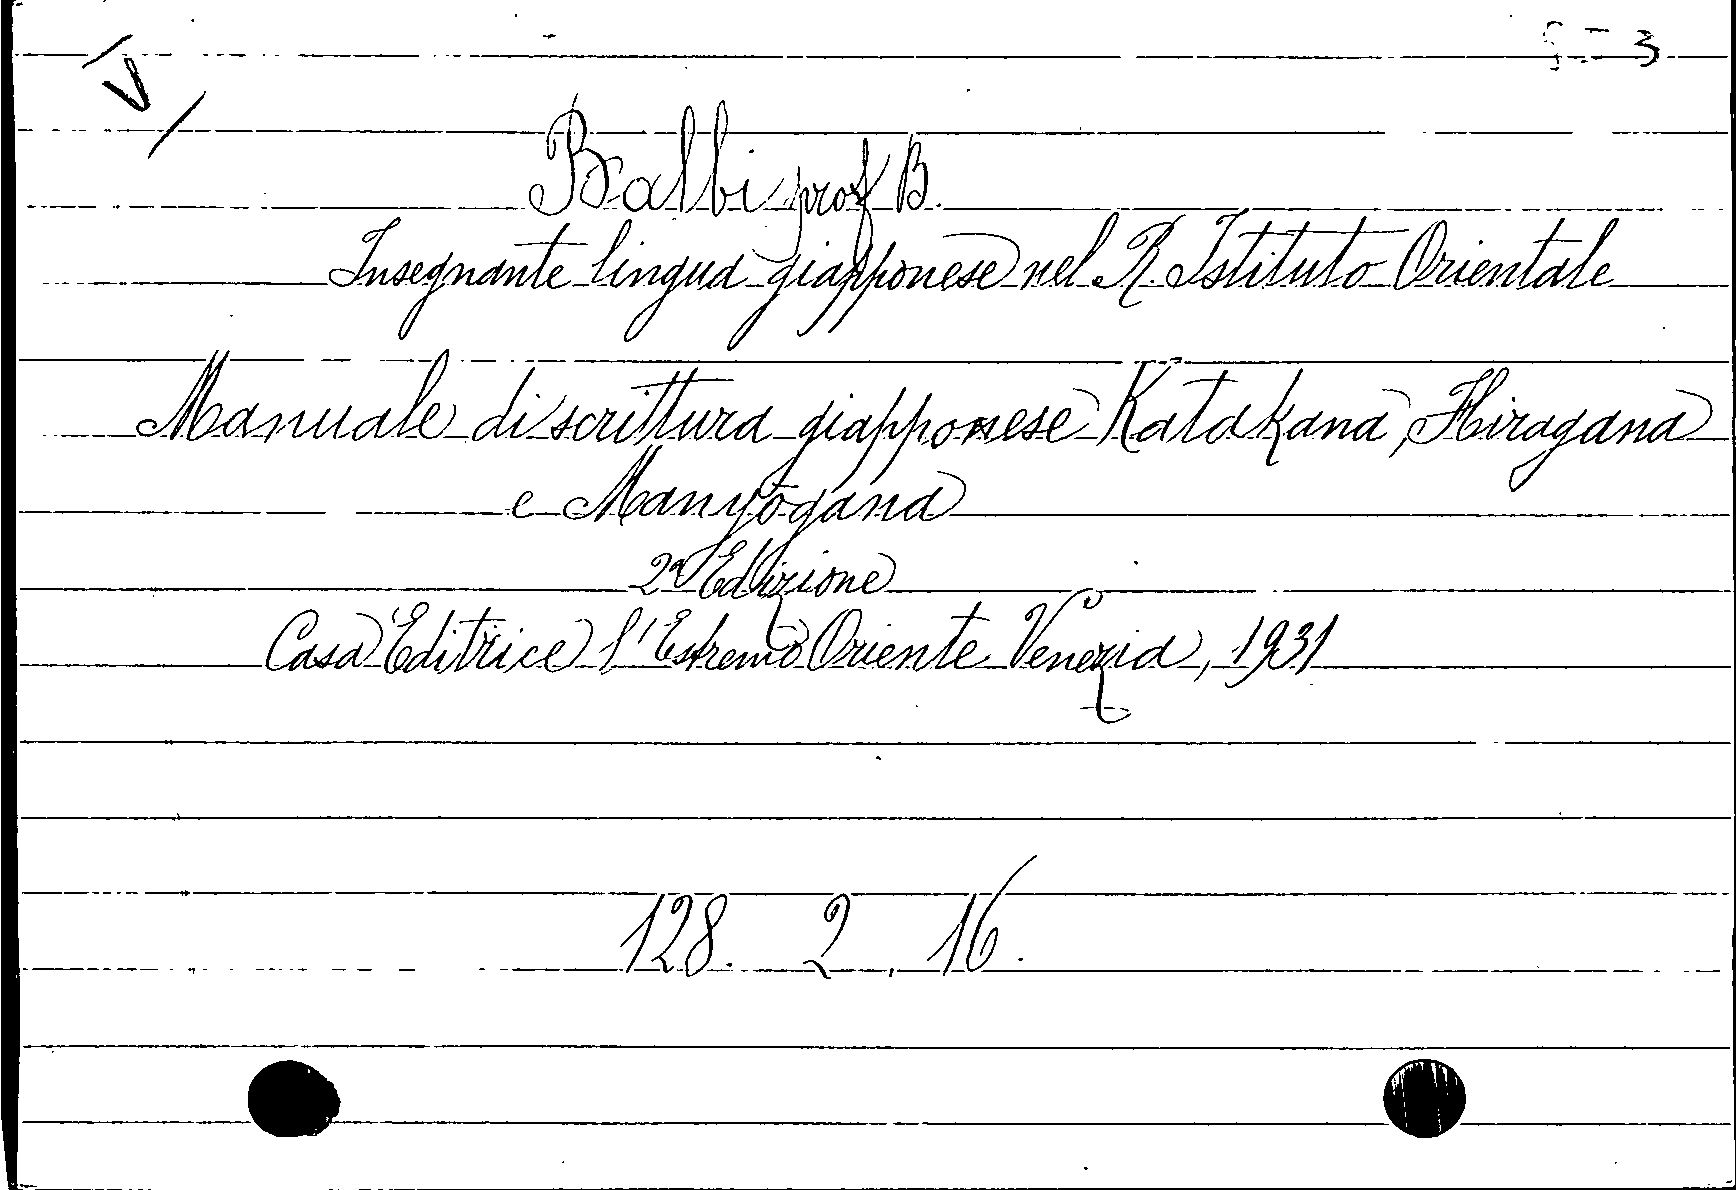 V
Balbi prof B.
Insegnante lingua giapponese nel R. Istituto Orientale
Manuale di scrittura giapponese Katakana, Hiragana
e Manyōgana
2ª Edizione
Casa Editrice l'Estremo Oriente Venezia, 1931
128. 2. 16.